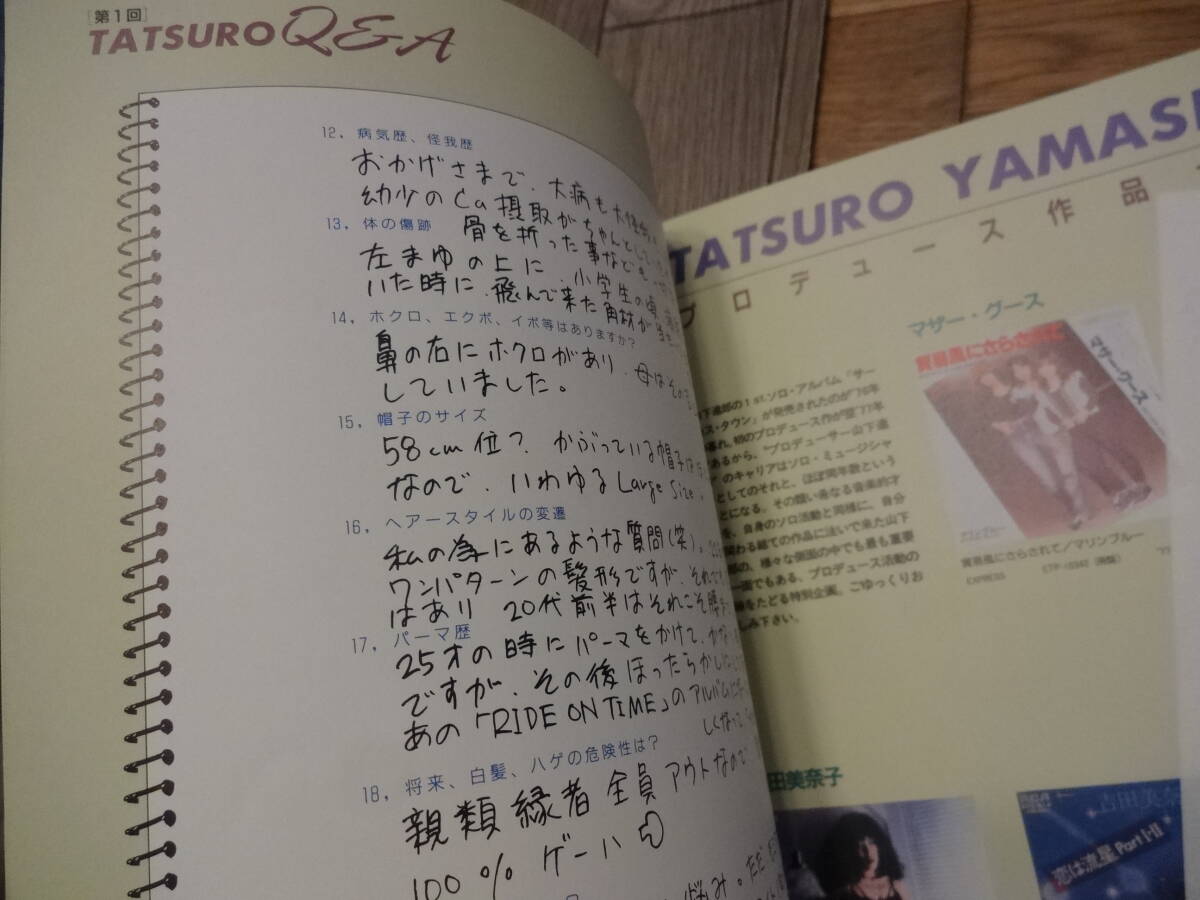 [第1回]
TATSURO Q&A
12, 病気歴、怪我歴
おかげさまで、大病も大怪我
幼少のCa摂取がちゃんとして
13, 体の傷跡
骨を折った事など
左まゆの上に、小学生の頃
いた時に、飛んで来た角材が
14, ホクロ、エクボ、イボ等はありますか?
鼻の右にホクロがあり、母は
していました。
15, 帽子のサイズ
58cm位? かぶっている帽子は
なので、いわゆるLarge Size.
16, ヘアースタイルの変遷
私の為にあるような質問(笑)。
ワンパターンの髪形ですが、それ
はあり 20代前半はそれこそ腰
17, パーマ歴
25才の時にパーマをかけて、
ですが、その後ほったらかしに
あの「RIDE ON TIME」のアルバム
しくなって
18, 将来、白髪、ハゲの危険性は?
親類縁者全員アウトなので
100% ゲーハー
TATSURO YAMAS
プロデュース作品
マザー・グース
下達郎の1st.ソロ・アルバム「サー
ス・タウン」が発売されたのが'76年
暮れ。初のプロデュース作が翌'77年
あるから、"プロデューサー山下達
"のキャリアはソロ・ミュージシャ
としてのそれと、ほぼ同年数という
とになる。その類い希なる音楽的才
を、自身のソロ活動と同様に、自分
関わる総ての作品に注いで来た山下
郎の、様々な側面の中でも最も重要
一面でもある、プロデュース活動の
をたどる特別企画。ごゆっくりお
しみ下さい。
貿易風にさらされて
マザー・グース
貿易風にさらされて/マリンブルー
EXPRESS
田美奈子
吉田美奈
恋は流星 Part I・II